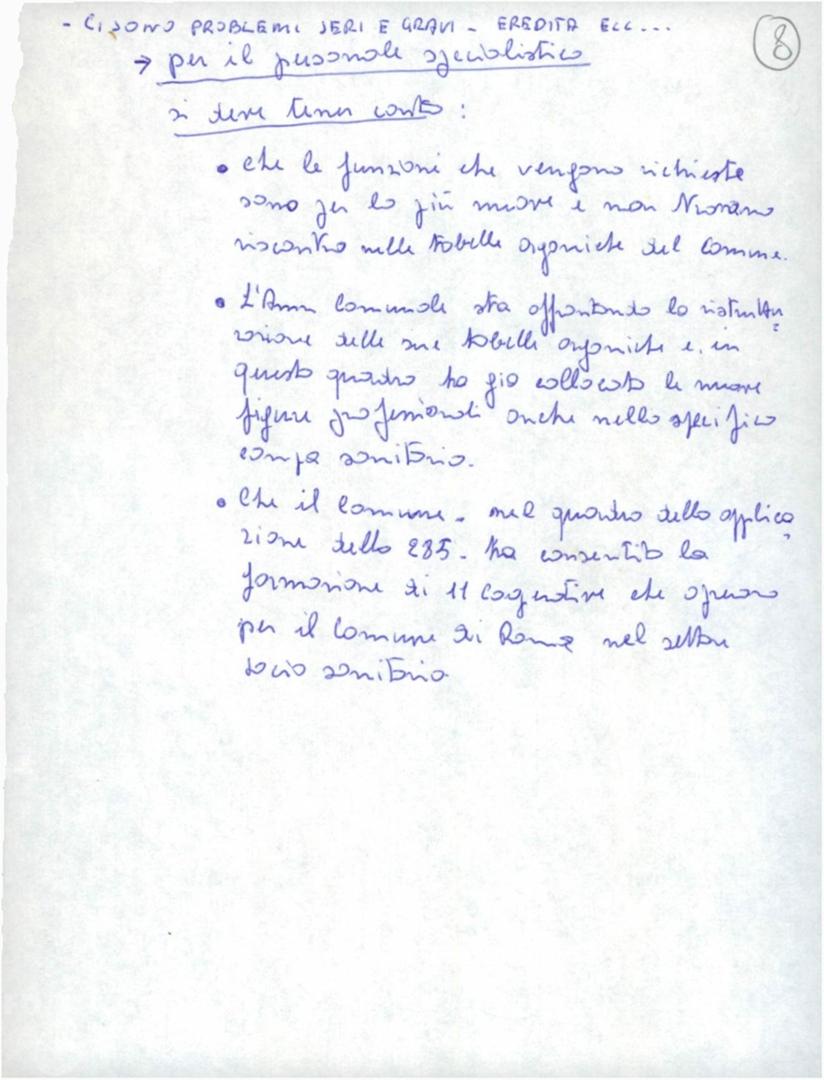 - CI SONO PROBLEMI SERI E GRAVI - EREDITA ECC...
8
→ per il personale specialistico
si deve tener conto :
• che le funzioni che vengono richieste
sono per lo più nuove e non trovano
riscontro nelle tabelle organiche del Comune.
• L'Amm Comunale sta affrontando la ristruttu
razione delle sue tabelle organiche e, in
questo quadro ha già collocato le nuove
figure professionali anche nello specifico
campo sanitario.
• Che il Comune - nel quadro della applica
zione della 285 - ha consentito la
formazione di 11 Cooperative che operano
per il Comune di Roma nel settore
socio sanitario